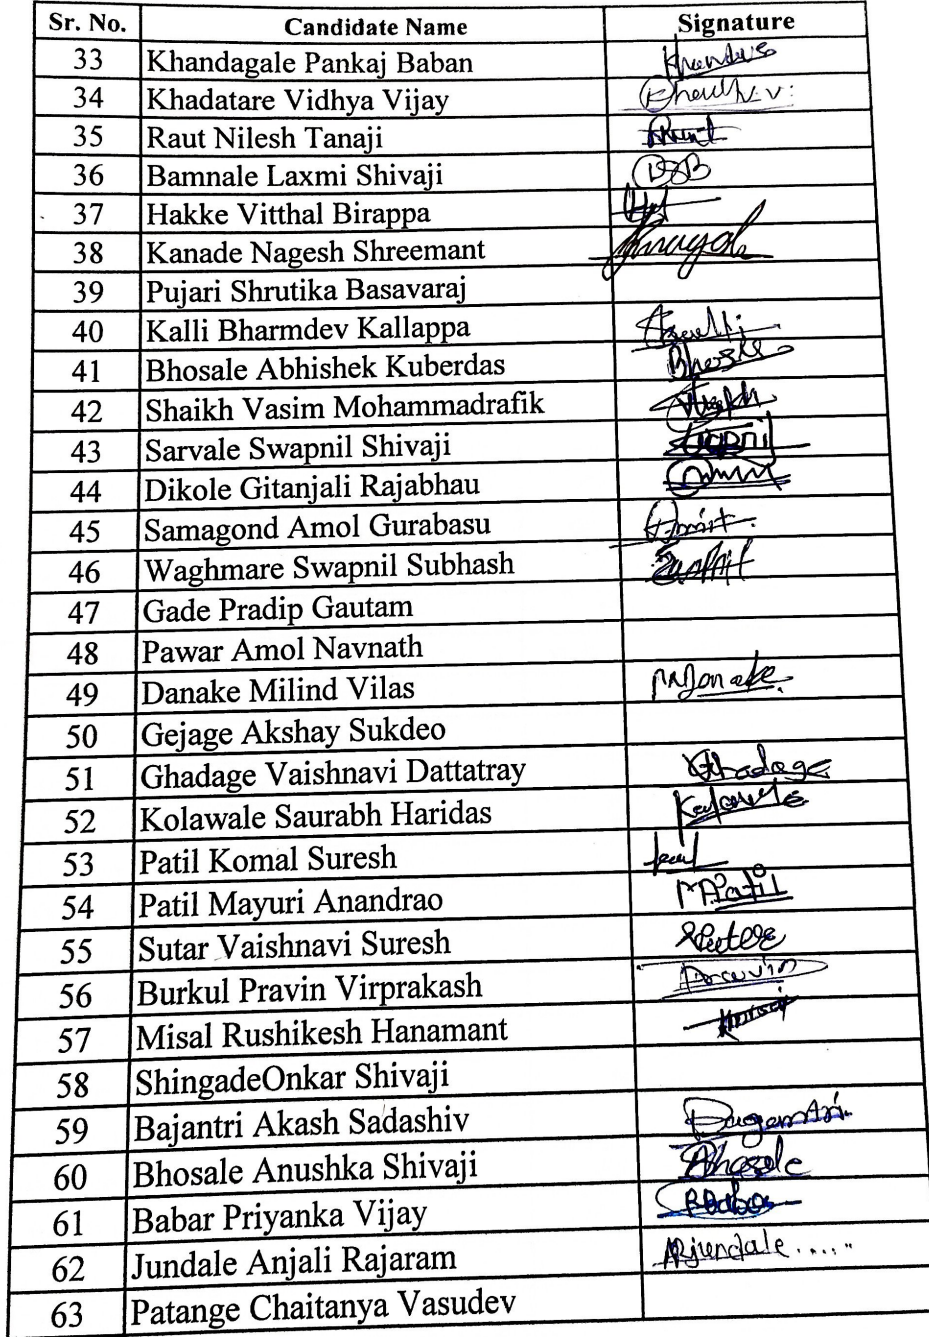 Sr. No. Candidate Name Signature
33 Khandagale Pankaj Baban
34 Khadatare Vidhya Vijay
35 Raut Nilesh Tanaji
36 Bamnale Laxmi Shivaji
37 Hakke Vitthal Birappa
38 Kanade Nagesh Shreemant
39 Pujari Shrutika Basavaraj
40 Kalli Bharmdev Kallappa
41 Bhosale Abhishek Kuberdas
42 Shaikh Vasim Mohammadrafik
43 Sarvale Swapnil Shivaji
44 Dikole Gitanjali Rajabhau
45 Samagond Amol Gurabasu
46 Waghmare Swapnil Subhash
47 Gade Pradip Gautam
48 Pawar Amol Navnath
49 Danake Milind Vilas
50 Gejage Akshay Sukdeo
51 Ghadage Vaishnavi Dattatray Ghadage
52 Kolawale Saurabh Haridas
53 Patil Komal Suresh
54 Patil Mayuri Anandrao MAPatil
55 Sutar Vaishnavi Suresh
56 Burkul Pravin Virprakash Pravin
57 Misal Rushikesh Hanamant
58 ShingadeOnkar Shivaji
59 Bajantri Akash Sadashiv
60 Bhosale Anushka Shivaji Bhosale
61 Babar Priyanka Vijay
62 Jundale Anjali Rajaram ARjundale.....
63 Patange Chaitanya Vasudev